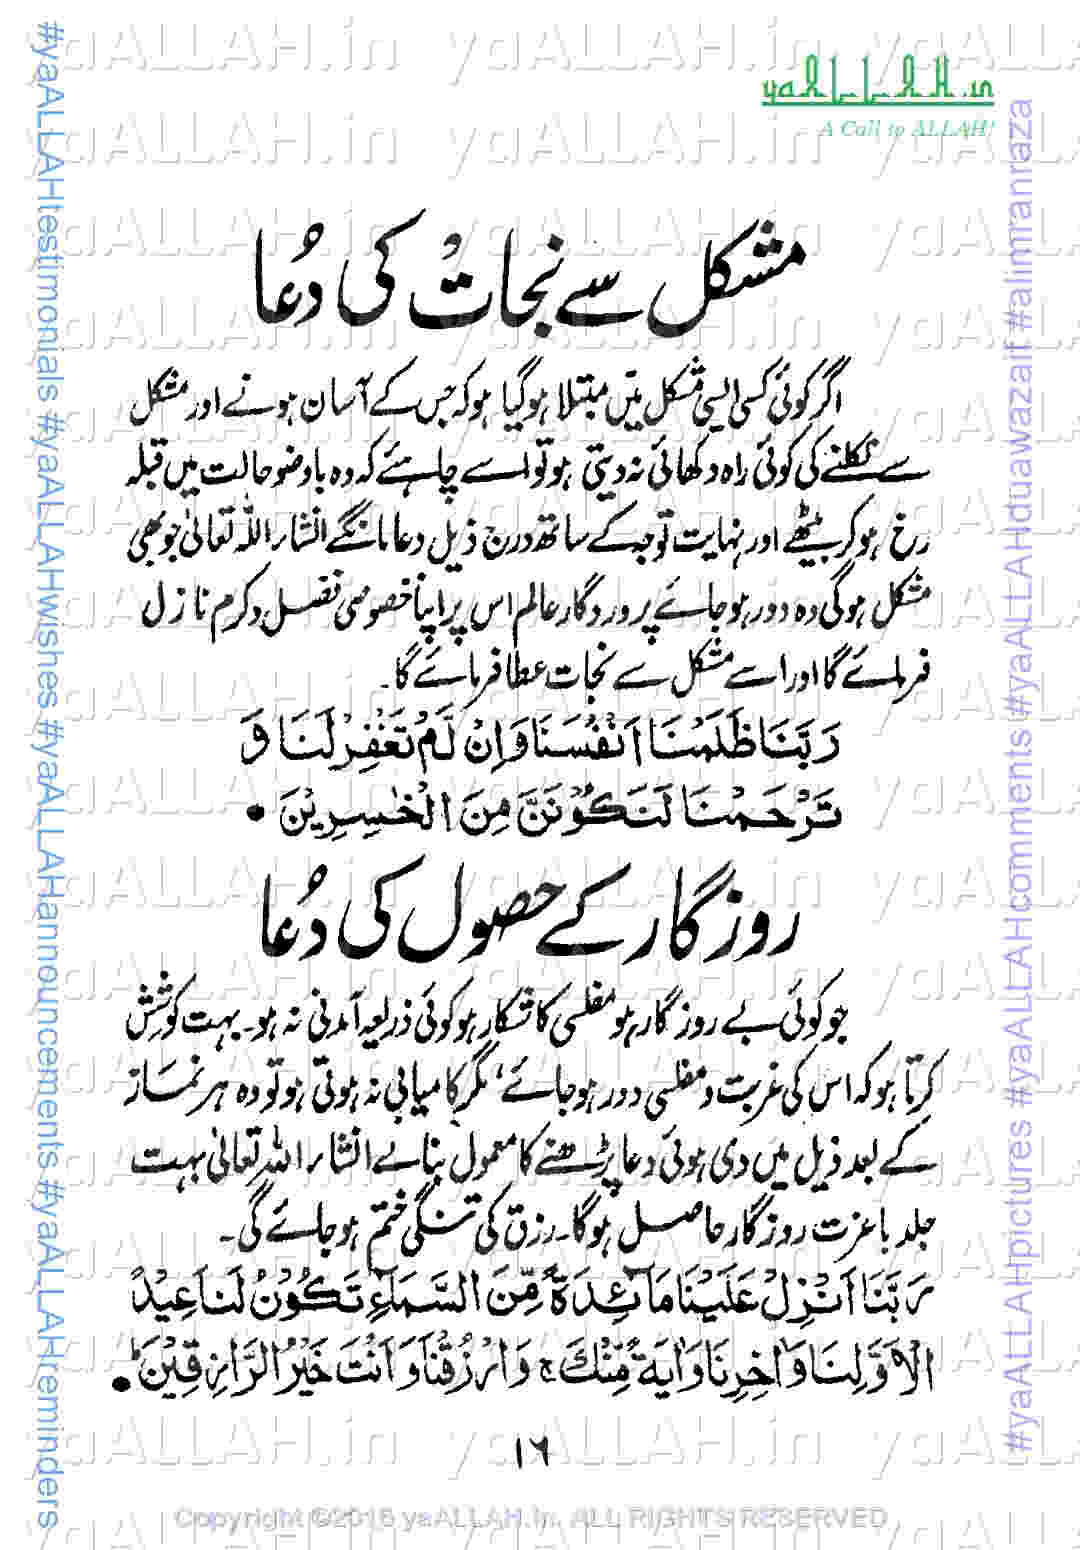 yaALLAH.in
A Call to ALLAH!
مشکل سے نجات کی دُعا
اگر کوئی کسی ایسی مشکل میں مبتلا ہو گیا ہو کہ جس کے آسان ہونے اور مشکل
سے نکلنے کی کوئی راہ دکھائی نہ دیتی ہو تو اسے چاہئے کہ وہ باوضو حالت میں قبلہ
رخ ہو کر بیٹھے اور نہایت توجہ کے ساتھ درج ذیل دعا مانگے انشاء اللہ تعالیٰ جو بھی
مشکل ہو گی وہ دور ہو جائے پروردگار عالم اس پر اپنا خصوصی فضل و کرم نازل
فرمائے گا اور اسے مشکل سے نجات عطا فرمائے گا۔
رَبَّنَا ظَلَمْنَا اَنْفُسَنَا وَاِنْ لَّمْ تَغْفِرْ لَنَا وَ
تَرْحَمْنَا لَنَكُوْنَنَّ مِنَ الْخٰسِرِيْنَ •
روزگار کے حصول کی دُعا
جو کوئی بے روزگار ہو مفلسی کا شکار ہو کوئی ذریعہ آمدنی نہ ہو۔ بہت کوشش
کرتا ہو کہ اس کی غربت و مفلسی دور ہو جائے، مگر کامیابی نہ ہوتی ہو تو وہ ہر نماز
کے بعد ذیل میں دی ہوئی دعا پڑھنے کا معمول بنا لے انشاء اللہ تعالیٰ بہت
جلد باعزت روزگار حاصل ہو گا۔ رزق کی تنگی ختم ہو جائے گی۔
رَبَّنَا اَنْزِلْ عَلَيْنَا مَآئِدَةً مِّنَ السَّمَآءِ تَكُوْنُ لَنَا عِيْدًا
لِّاَوَّلِنَا وَاٰخِرِنَا وَاٰيَةً مِّنْكَ ج وَارْزُقْنَا وَاَنْتَ خَيْرُ الرَّازِقِيْنَ ط •
١٦
Copyright ©2016 yaALLAH.in. ALL RIGHTS RESERVED
#yaALLAHtestimonials #yaALLAHwishes #yaALLAHannouncements #yaALLAHreminders
#yaALLAHpictures #yaALLAHcomments #yaALLAHduawazaif #alimranraza